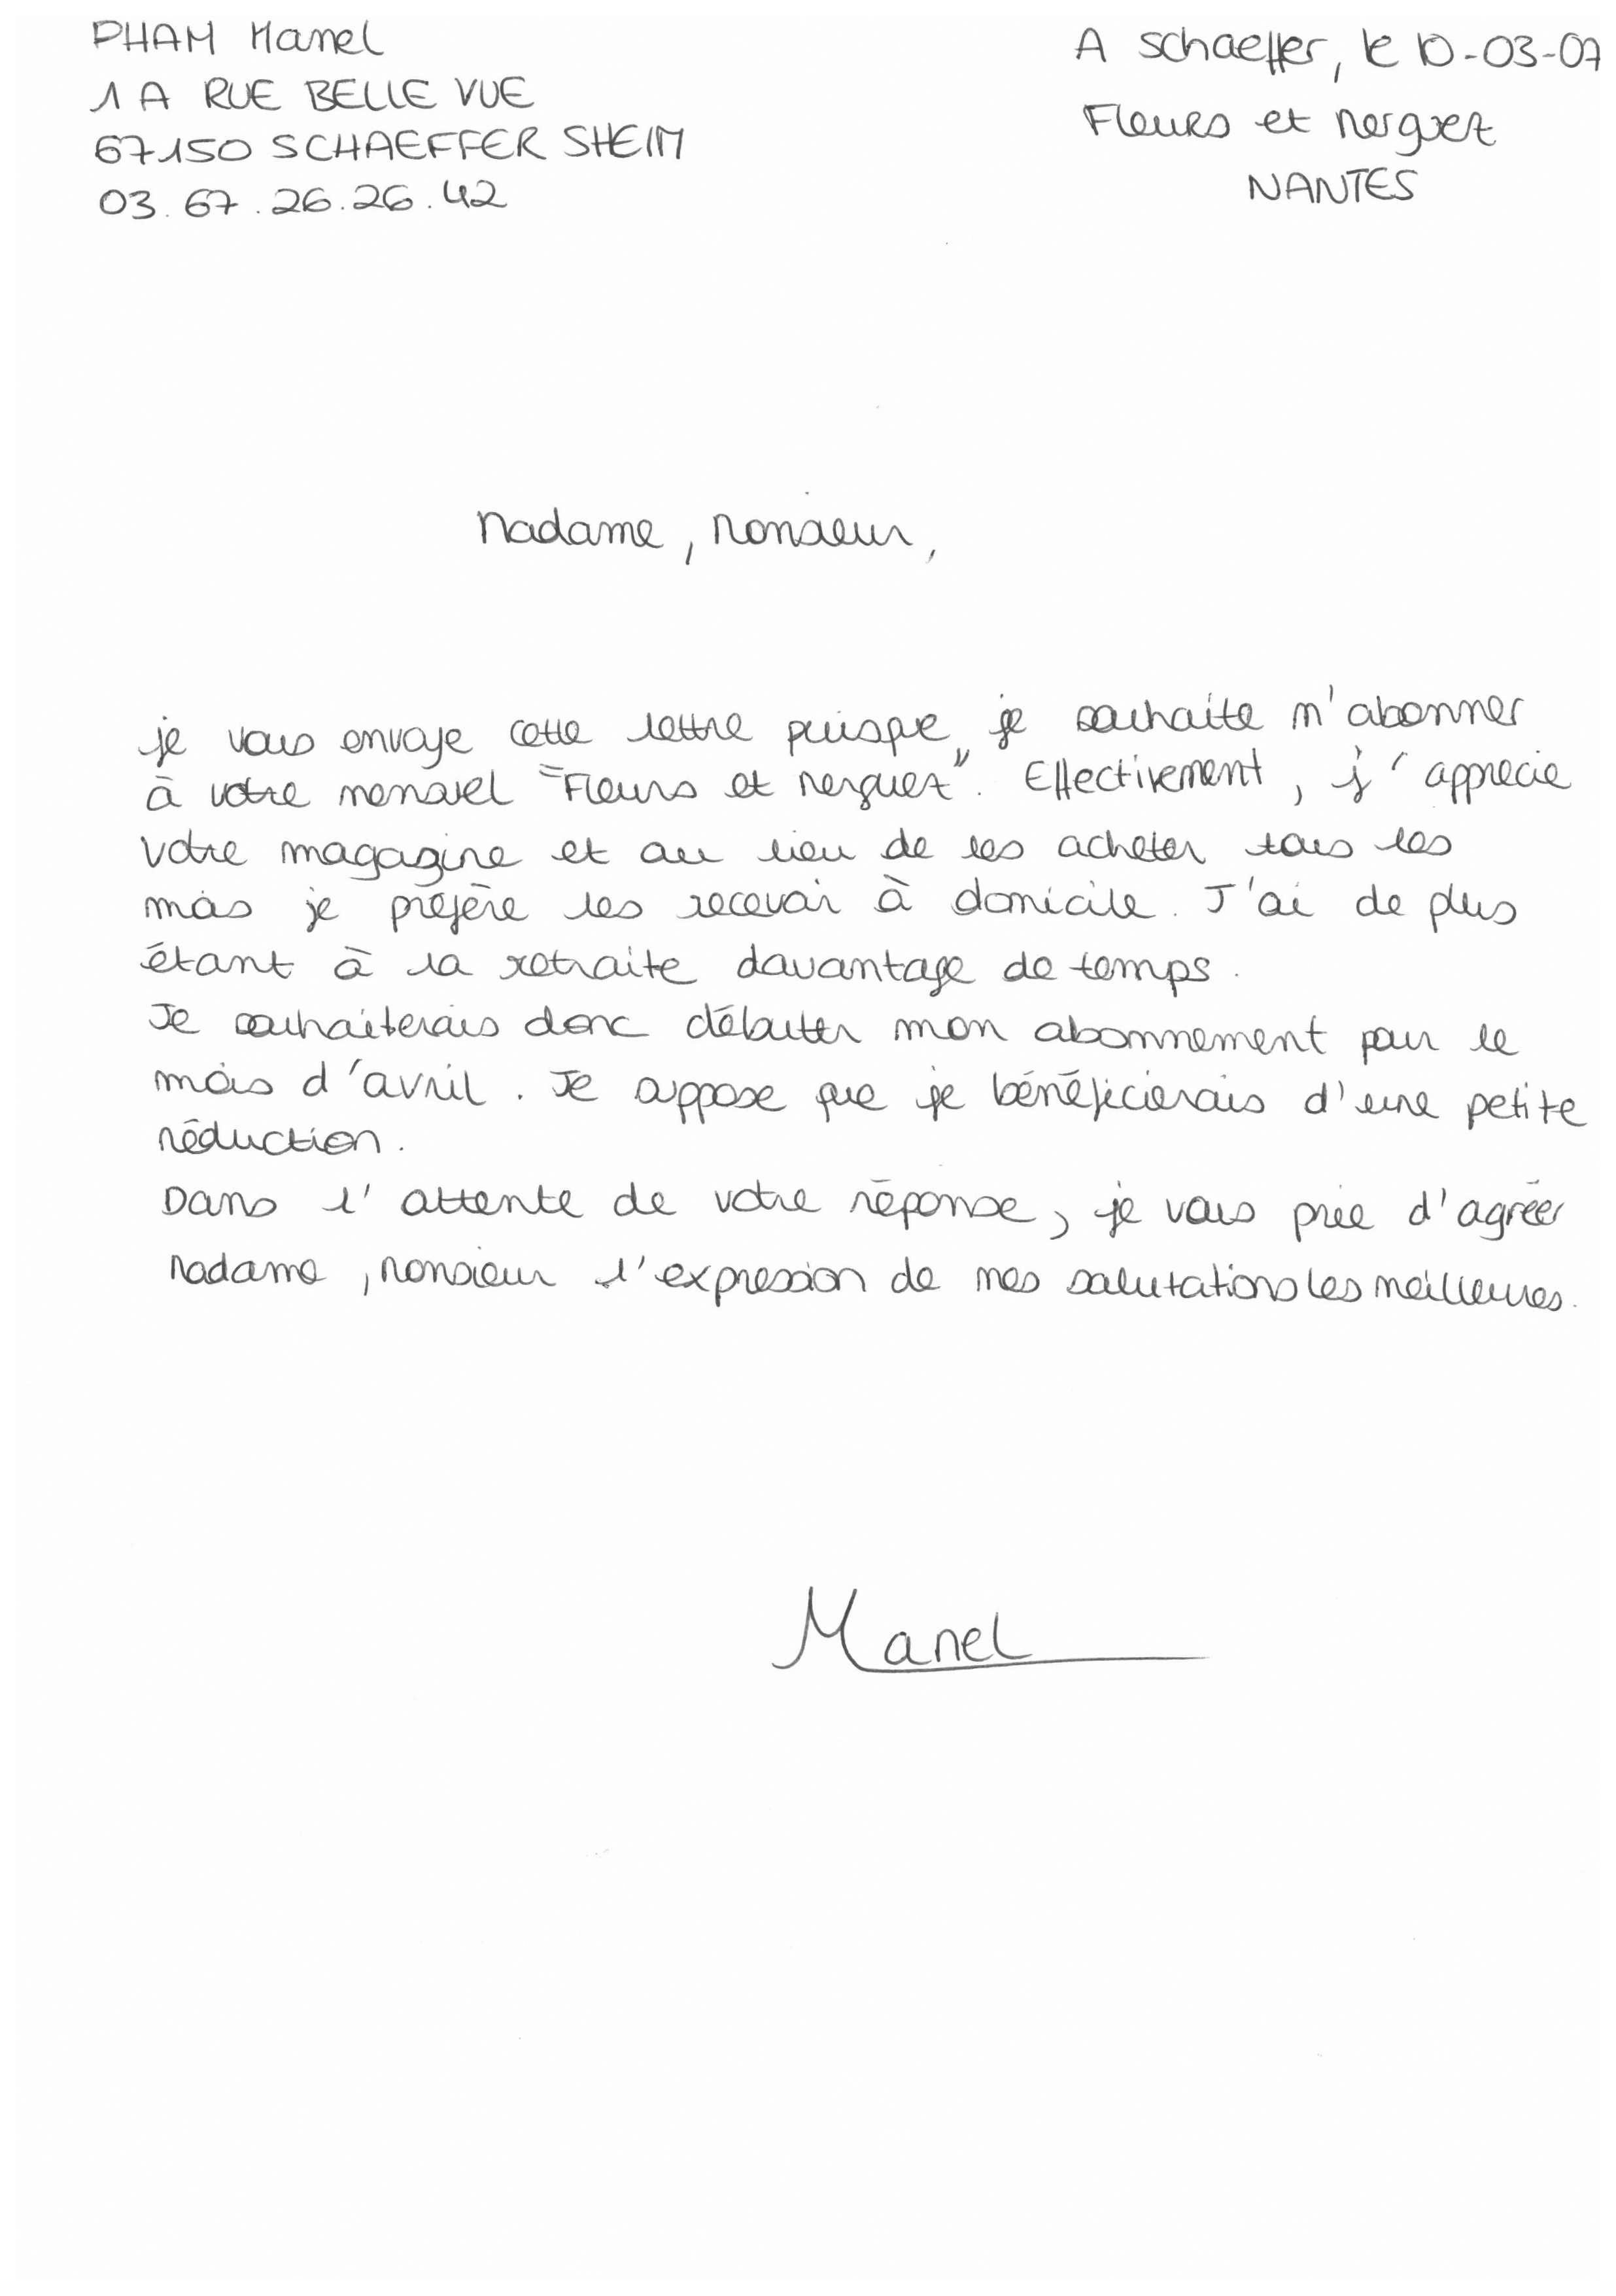 PHAM Manel
1 A RUE BELLE VUE
67150 SCHAEFFER SHEIM
03.67.26.26.42
A Schaeffer, le 10-03-07
Fleurs et Merguez
NANTES
Madame, Monsieur,
je vous envoie cette lettre puisque je souhaite m'abonner
à votre mensuel "Fleurs et Merguez". Effectivement, j'apprecie
votre magazine et au lieu de les acheter tous les
mois je préfère les recevoir à domicile. J'ai de plus
étant à la retraite davantage de temps.
Je souhaiterais donc débuter mon abonnement pour le
mois d'avril. Je suppose que je bénéficierais d'une petite
réduction.
Dans l'attente de votre réponse, je vous prie d'agréer
Madame, Monsieur l'expression de mes salutations les meilleures.
Manel